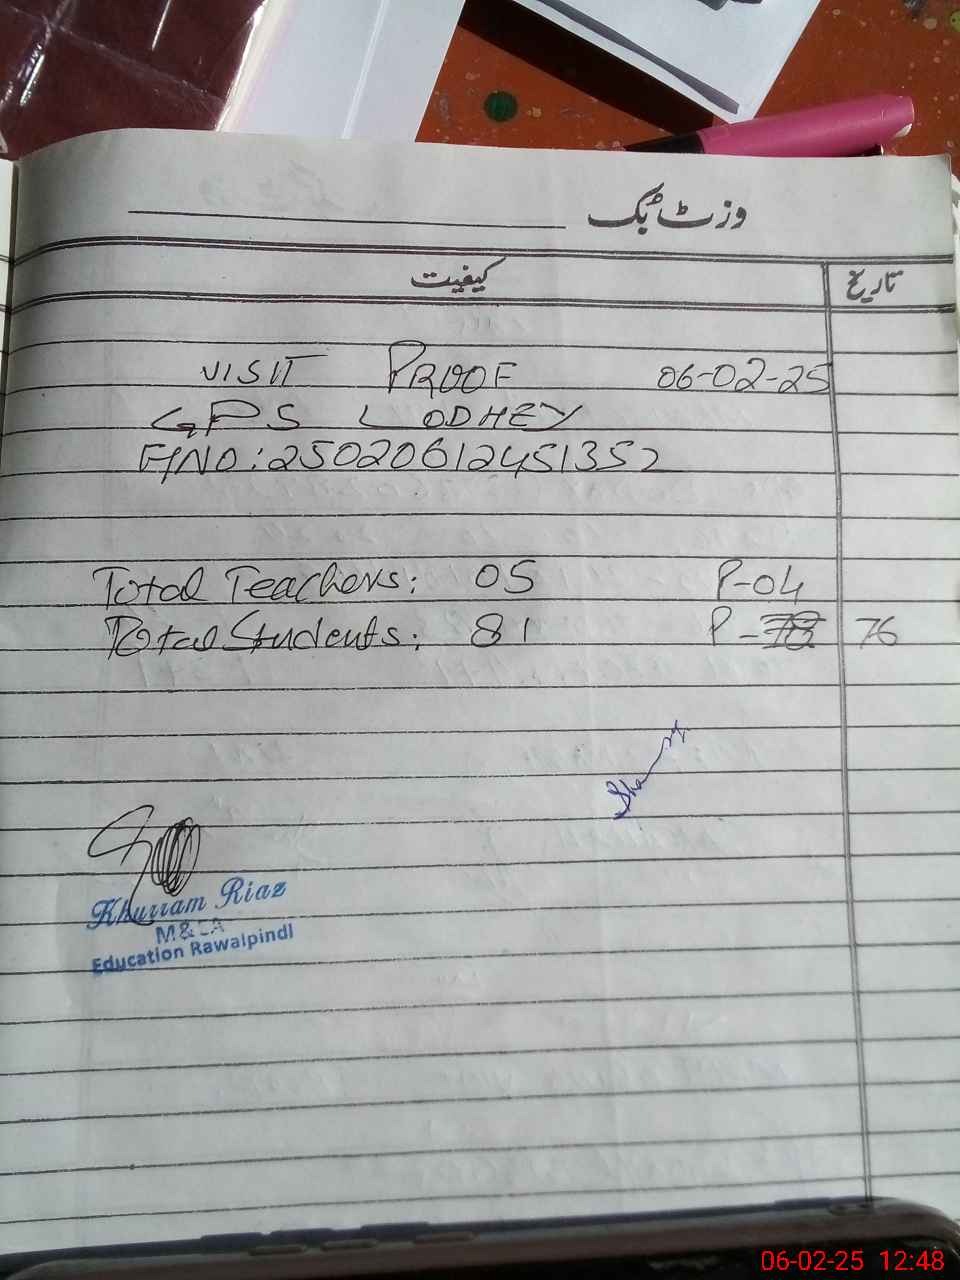 وزٹ بک
کیفیت تاریخ
VISIT PROOF 06-02-25
GPS LODHEY
F/NO: 25020612451352
Total Teachers: 05 P-04
Total Students: 81 P-78 76
Khurram Riaz
M&EA
Education Rawalpindi
06-02-25 12:48